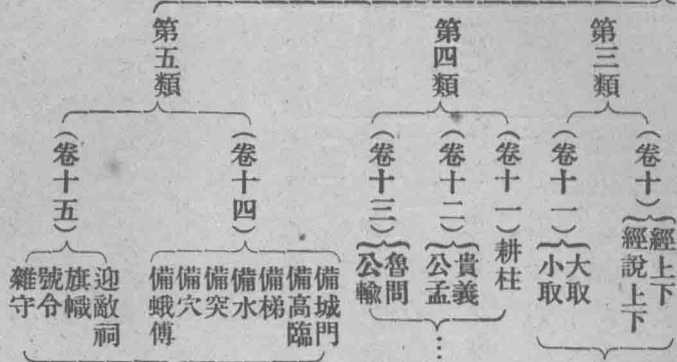 第三類
（卷十）
經上下
經說上下
（卷十一）
大取
小取
第四類
（卷十一）
耕柱
（卷十二）
貴義
公孟
（卷十三）
魯問
公輸
…
第五類
（卷十四）
備城門
備高臨
備梯
備水
備突
備穴
備蛾傅
（卷十五）
迎敵祠
旗幟
號令
雜守